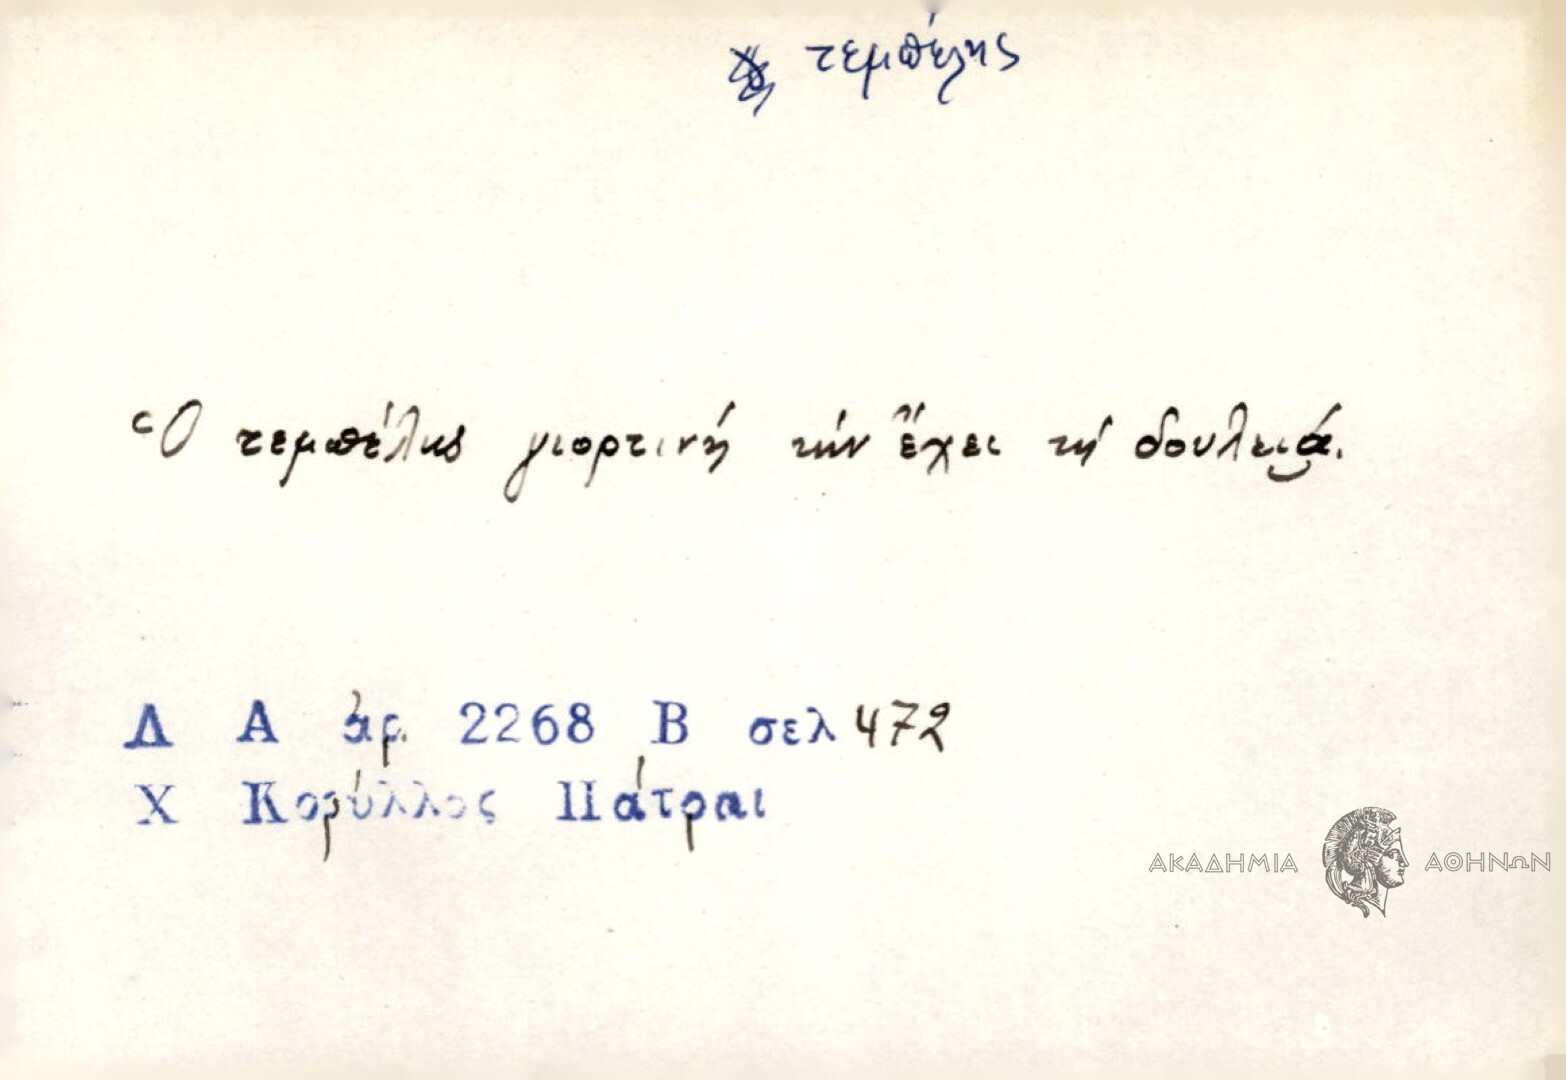 τεμπέλης
Ὁ τεμπέλης γιορτινή τήν ἔχει τή δουλειά.
Δ Α ἀρ. 2268 Β σελ 472
Χ Κορύλλος Πάτραι
ΑΚΑΔΗΜΙΑ ΑΘΗΝΩΝ